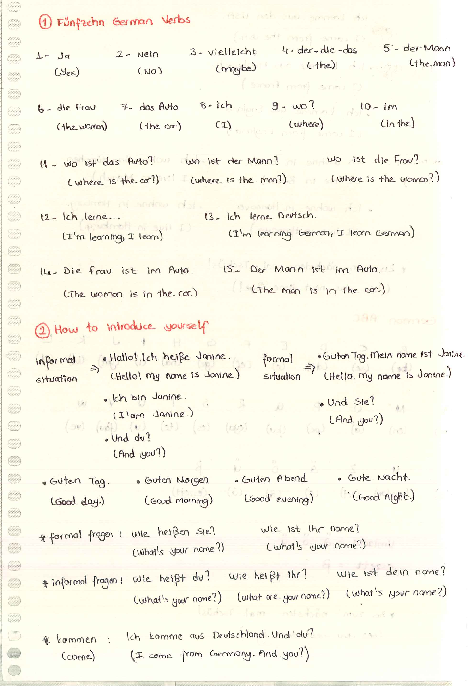 ① Fünfzehn German Verbs
1- Ja 2- Nein 3- vielleicht 4- der-die-das 5- der Mann
(Yes) (No) (maybe) (the) (the man)
6- die Frau 7- das Auto 8- ich 9- wo? 10- im
(the woman) (the car) (I) (where) (in the)
11- wo ist das Auto? wo ist der Mann? wo ist die Frau?
(where is the car?) (where is the man?) (where is the woman?)
12- Ich lerne... 13- Ich lerne Deutsch.
(I'm learning, I learn) (I'm learning German, I learn German)
14- Die Frau ist im Auto 15- Der Mann ist im Auto.
(The woman is in the car.) (The man is in the car.)
② How to introduce yourself
informal situation ⇒ • Hallo! Ich heiße Janine.
(Hello! my name is Janine.)
• Ich bin Janine.
(I'am Janine)
• Und du?
(And you?)
formal situation ⇒ • Guten Tag. Mein name ist Janine
(Hello. my name is Janine)
• Und Sie?
(And you?)
• Guten Tag. • Guten Morgen • Guten Abend • Gute Nacht.
(Good day.) (Good morning) (Good evening) (Good night.)
* formal fragen: wie heißen Sie? wie ist Ihr name?
(What's your name?) (What's your name?)
* informal fragen: wie heißt du? wie heißt Ihr? wie ist dein name?
(What's your name?) (What are your name?) (What's your name?)
* kommen : Ich komme aus Deutschland. Und du?
(come) (I come from Germany. And you?)